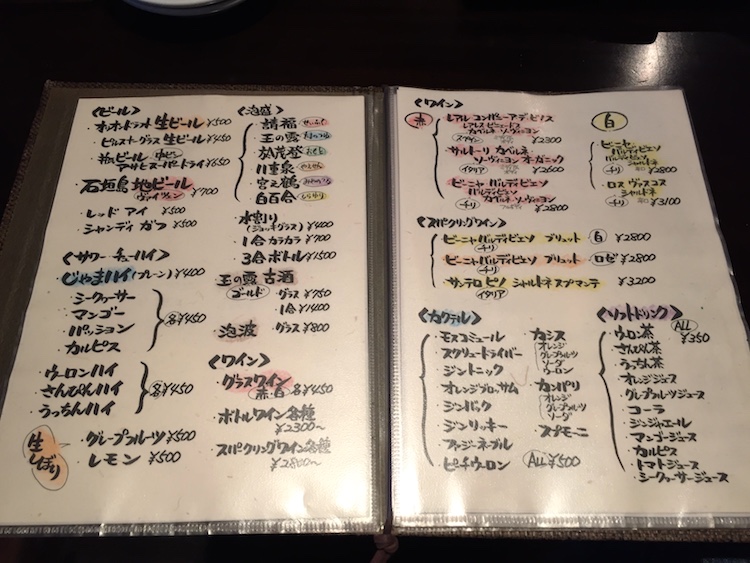 <ビール>
・オリオンドラフト 生ビール ¥500
・ピルスナーグラス 生ビール ¥450
・瓶ビール 中ビン
アサヒスーパードライ ¥650
石垣島 地ビール ¥700
ヴァイツェン
・レッド アイ ¥500
・シャンディ ガフ ¥500
<サワー・チューハイ>
・じゃまハイ(プレーン) ¥400
・シークヮーサー
・マンゴー
・パッション
・カルピス
各¥450
・ウーロンハイ
・さんぴんハイ
・うっちんハイ
各¥450
生しぼり
・グレープフルーツ ¥500
・レモン ¥500
<泡盛>
・請福 せいふく
・玉の露 たまのつゆ
・於茂登 おもと
・八重泉 やえせん
・宮之鶴 みやのつる
・白百合 しらゆり
・水割り
(ジョッキグラス) ¥400
・1合カラカラ ¥700
・3合ボトル ¥1500
玉の露 古酒
ゴールド ・グラス ¥750
・1合 ¥1400
・泡波 ・グラス ¥800
<ワイン>
・グラスワイン
赤・白 各¥450
・ボトルワイン各種
¥2300〜
・スパークリングワイン各種
¥2800〜
<ワイン>
赤
・レアル コンパニーア・デ・ビノス
カベルネ・ソーヴィニヨン
スペイン ¥2300
・サルトーリ カベルネ
・ソーヴィニヨン オーガニック
イタリア ¥2600
・ビーニャ バルディビエソ
バルディビエソ
カベルネ・ソーヴィニヨン
チリ ¥2800
白
・ビーニャ
バルディビエソ
バルディビエソ
シャルドネ
チリ 辛口 ¥2800
・ロス ヴァスコス
シャルドネ
チリ 辛口 ¥3100
<スパークリングワイン>
・ビーニャ バルディビエソ ブリュット 白 ¥2800
チリ
・ビーニャ バルディビエソ ブリュット ロゼ ¥2800
チリ
・サンテロ ピノ シャルドネ スプマンテ ¥3200
イタリア
<カクテル>
・モスコミュール
・スクリュードライバー
・ジントニック
・オレンジブロッサム
・ジンバック
・ジンリッキー
・ファジーネーブル
・ピーチウーロン
・カシス
オレンジ
グレープフルーツ
ソーダ
ウーロン
・カンパリ
オレンジ
グレープフルーツ
ソーダ
・スプモーニ
ALL ¥500
<ソフトドリンク>
ALL ¥350
・ウーロン茶
・さんぴん茶
・うっちん茶
・オレンジジュース
・グレープフルーツジュース
・コーラ
・ジンジャエール
・マンゴージュース
・カルピス
・トマトジュース
・シークヮーサージュース